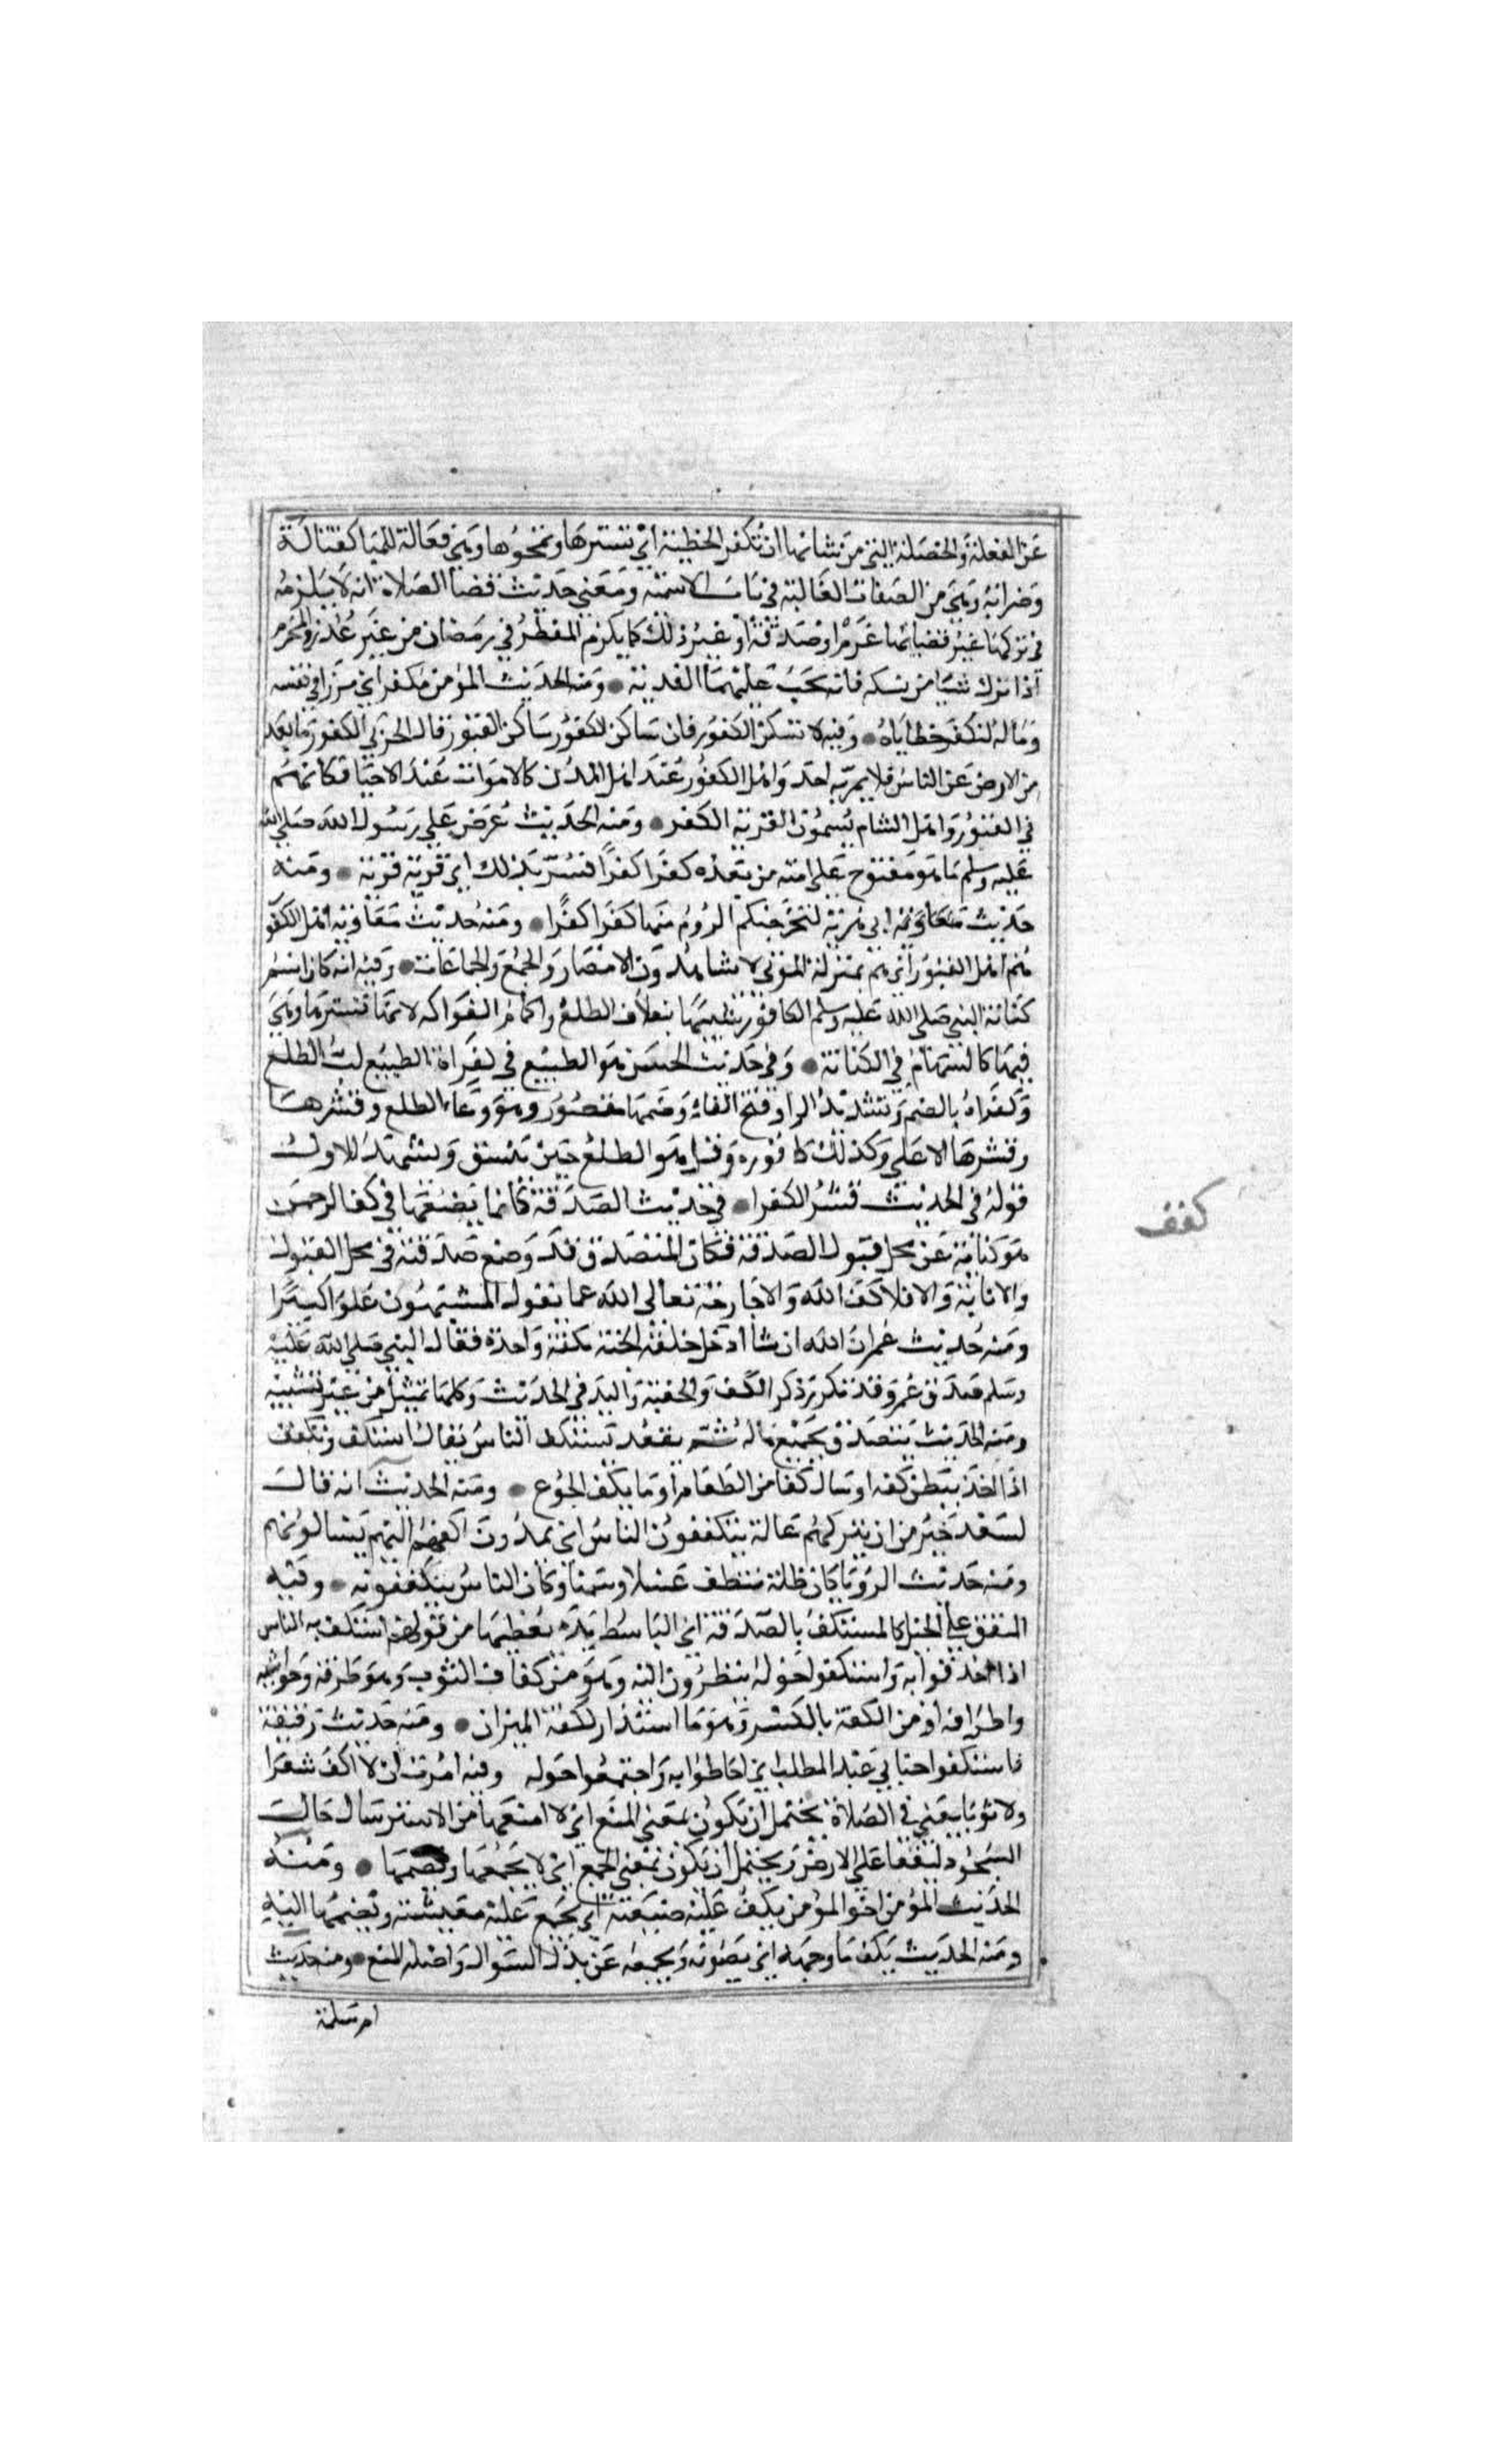 عن الفعلة والخصلة التي من شانها ان تكفر الخطيئة اي تسترها وتمحوها وهي فعالة للمبالغة كقتالة
وضرابة وهي من الصفات الغالبة في باب الاسمية ومعنى حديث قضا الصلاة انه لا يلزمه
في تركها غير قضائها من غرم او صدقة او غير ذلك كما يلزم المفطر في رمضان من غير عذر والمحرم
اذا ترك شيا من نسكه فانه تجب عليهما الفدية ● ومنه الحديث المؤمن مكفر اي مرزا في نفسه
وماله لتكفر خطاياه ● وفيه لا تسكن الكفور فان ساكن الكفور كساكن القبور قال الحربي الكفور ما بعد
من الارض عن الناس فلا يمر به احد واهل الكفور عند اهل المدن كالاموات عند الاحيا فكانهم
في القبور واهل الشام يسمون القرية الكفر ● ومنه الحديث عرض على رسول الله صلى الله
عليه وسلم ما هو مفتوح على امته من بعده كفرا كفرا فسر بذلك اي قرية قرية ● ومنه
حديث ابي هريرة لتخرجنكم الروم منها كفرا كفرا ● ومنه حديث معاوية اهل الكفور
هم اهل القبور اي هم بمنزلة الموتى لا يشاهدون الامصار والجمع والجماعات ● وفيه انه كان اسم
كنانة النبي صلى الله عليه وسلم الكافور تشبيها بغلاف الطلع واكمام الفواكه لانها تسترها وهي
فيها كالسهام في الكنانة ● وفي حديث الحسن هو الطبيع في كفراه الطبيع لب الطلع
وكفراه بالضم وتشديد الرا وفتح الفاء وضمها مقصور وهو وعاء الطلع وقشرها
وقشرها الاعلى وكذلك كافوره وقيل هو الطلع حين ينشق ويشهد للاول
قوله في الحديث قشر الكفرا ● في حديث الصدقة كانما يضعها في كف الرحمن
كفف
هو كناية عن محل قبول الصدقة فكان المتصدق قد وضع صدقته في محل القبول
والاثابة والا فلا كف الله والا جارحة تعالى الله عما يقول المشبهون علوا كبيرا
ومنه حديث عمر ان الله ان شا ادخل خلقه الجنة بكف واحدة فقال النبي صلى الله عليه
وسلم صدق عمر وقد تكرر ذكر الكف والحفنة واليد في الحديث وكلها تمثيل من غير تشبيه
ومنه الحديث يتصدق بجميع ماله ثم يقعد يستكف الناس يقال استكف وتكفف
اذا اخذ ببطن كفه او سال كفا من الطعام او ما يكف الجوع ● ومنه الحديث انه قال
لسعد خير من ان تتركهم عالة يتكففون الناس اي يمدون اكفهم اليهم يسالونهم
ومنه حديث الرؤيا كان ظلة تنطف عسلا وسمنا وكان الناس يتكففونه ● وفيه
المنفق على الخيل كالمستكف بالصدقة اي الباسط يده يعطيها من قولهم استكف به الناس
اذا احدقوا به واستكفوا حوله ينظرون اليه وهو من كفاف الثوب وهو طرته وحواشيه
واطرافه او من الكفة بالكسر وهو ما استدار ككفة الميزان ● ومنه حديث رقيقة
فاستكفوا جنابي عبد المطلب اي احاطوا به واجتمعوا حوله وفيه امرت ان لا اكف شعرا
ولا ثوبا يعني في الصلاة يحتمل ان يكون بمعنى المنع اي لا امنعهما من الاسترسال حال
السجود ليقعا على الارض ويحتمل ان يكون بمعنى الجمع اي لا يجمعهما ويضمهما ● ومنه
الحديث المؤمن اخو المؤمن يكف عليه ضيعته اي يجمع عليه معيشته ويضمها اليه
ومنه الحديث يكف ما وجهه اي يصونه ويجمعه عن بذل السوال واصله المنع ● ومنه حديث
ام سلمة